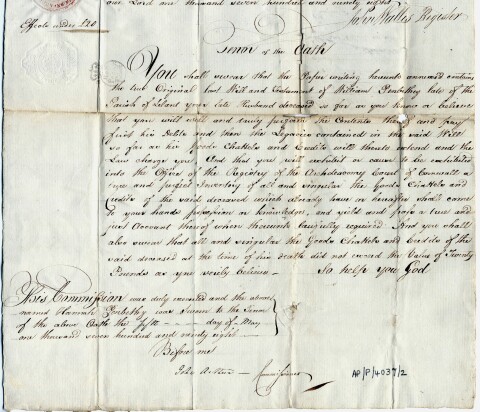 our Lord one thousand seven hundred and ninety eight
John Wallis Register
Effects under £20
Tenor of the Oath
You shall swear that the Paper writing hereunto annexed contains
the true Original last Will and Testament of William Penberthy late of the
Parish of Lelant your late Husband deceased so far as you know or believe
that you will well and truly perform the Contents thereof and pay
first his Debts and then the Legacies contained in the said Will
so far as his Goods Chattels and Credits will thereto extend and the
Law charge you And that you will exhibit or cause to be exhibited
into the Office of the Registry of the Archdeaconry Court of Cornwall a
true and perfect Inventory of all and singular the Goods Chattels and
Credits of the said deceased which already have or hereafter shall come
to your hands possession or knowledge, and yield and make a true and
just Account thereof when thereunto lawfully required And you shall
also swear that all and singular the Goods Chattels and Credits of the
said deceased at the time of his death did not exceed the Value of Twenty
Pounds as you verily believe So help you God
This Commission was duly executed and the above
named Hannah Penberthy was sworn to the Tenor
of the above Oath the fifth day of May
one thousand seven hundred and ninety eight
Before me
John Arthur Commissioner
AP/P/4037/2